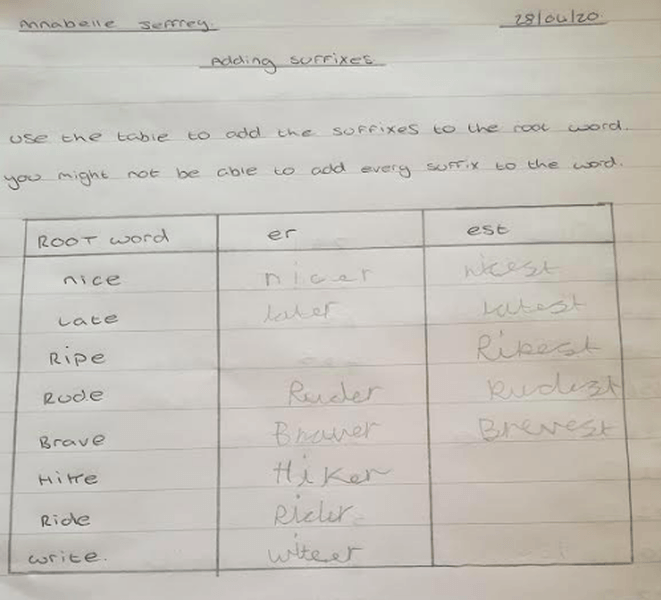 Annabelle Jeffrey. 28/04/20
Adding suffixes
use the table to add the suffixes to the root word.
you might not be able to add every suffix to the word.
ROOT word er est
nice nicer nicest
Late later latest
Ripe Ripest
Rude Ruder Rudest
Brave Braver Brevest
Hike Hiker
Ride Rider
write. witeer